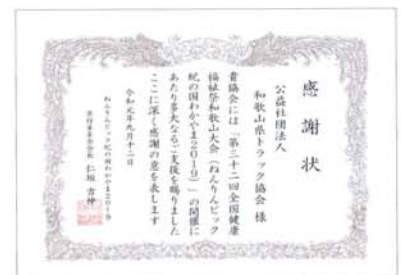 感謝状
公益社団法人
和歌山県トラック協会 様
貴協会には「第三十二回全国健康
福祉祭和歌山大会(ねんりんピック
紀の国わかやま2019)」の開催に
あたり多大なるご支援を賜りました
ここに深く感謝の意を表します
令和元年九月十二日
ねんりんピック紀の国わかやま2019
実行委員会会長 仁坂 吉伸